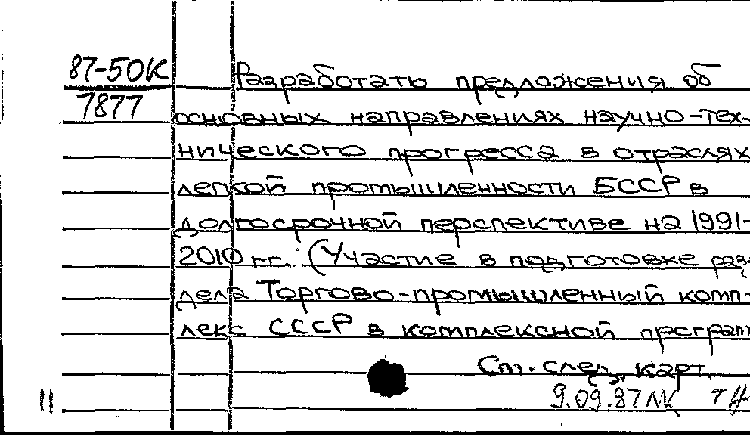 87-50К Разработать предложения об
7877 основных направлениях научно-тех-
нического прогресса в отраслях
легкой промышленности БССР в
долгосрочной перспективе на 1991-
2010 гг. (Участие в подготовке раз-
дела Торгово-промышленный комп-
лекс СССР в комплексной програм
См. след. карт.
11 9.09.87